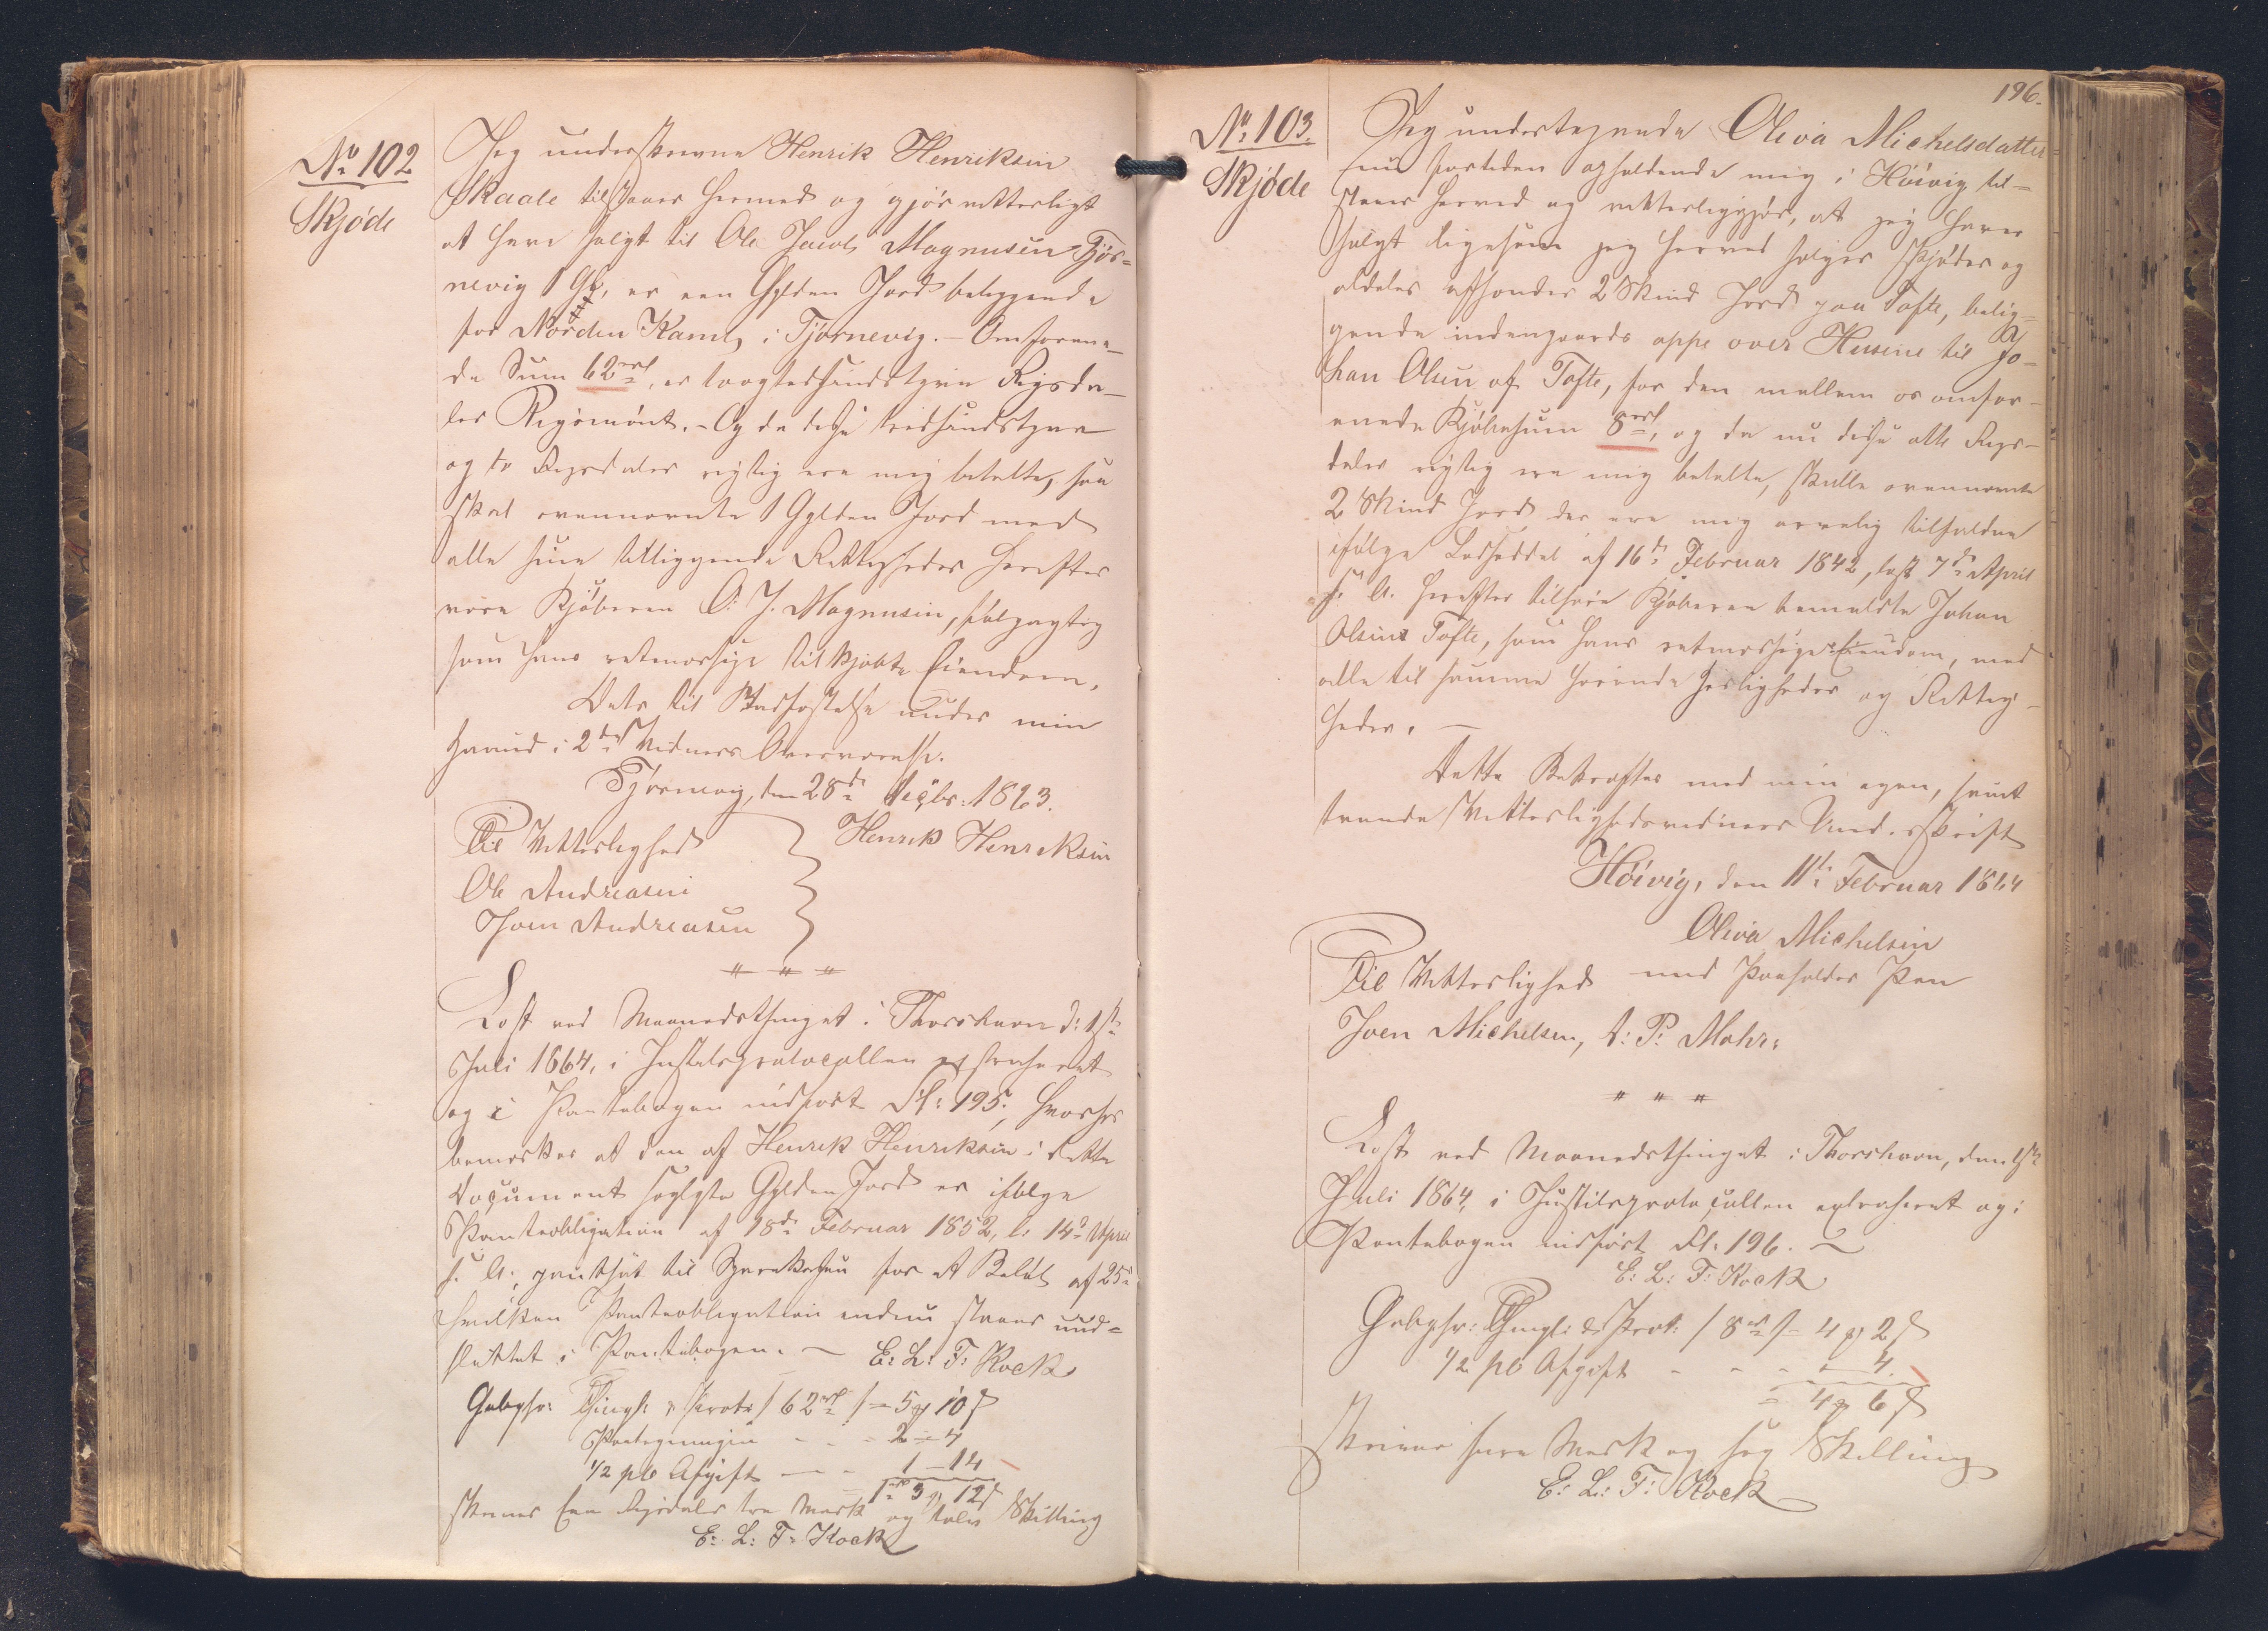 No 102
Skjöde
Jeg underskrevne Henrik Henriksen
Skaale tilstaaer hermed og gjör vitterligt
at have solgt til Ole Jacob Magnusen Tjör=
nevig 1 Gl, er een Gylden Jord beliggende
for Norden Kamb, i Tjörnevig. - Omforene-
de Sum 62 rd, er toogtredsindstyve Rigsda-
ler Rigsmönt. - Og da disse tredsindstyve
og to Rigsdaler rigtig ere mig betalte, saa
skal ovennævnte 1 Gylden Jord med
alle sine tilliggende Rettigheder herefter
være Kjöberen O: J. Magnusen, fulgagtig
som hans retmæssige tilkjöbte Eiendom.
Dets til Stadfæstelse under min
Haand i 2de Vidners Overværelse.
Tjörnevig, den 28de Decbr: 1863.
Til Vitterlighed
Henrik Henriksen
Ole Andreasen
Joen Andreasen
Læst ved Maanedsthinget i Thorshavn d: 1ste
Juli 1864, i Justitsprotocollen extraheret
og i Pantebogen indfört Fl: 195, hvorhos
bemærkes at den af Henrik Henriksen i dette
Document solgte Gylden Jord er ifölge
Panteobligation af 18de Februar 1852, l. 14de April
s. A., pantsat til Sparekassen for et Belöb af 25 rd
hvilken Panteobligation endnu staaer uud=
slettet i Pantebogen. - E: L: F: Kock
Gebyhr: Thingl: & Prot: / 62 rd / = 5 mk 10 s
Paategningen - - 2 - 4
1/2 pCt Afgift - - 1 - 14
1 rd 3 mk 12 s
skriver Een Rigsdaler tre Mark og tolv Skilling
E: L: F: Kock
196.
No 103.
Skjöde
Jeg undertegnede Oliva Michelsdatter
nu for tiden opholdende mig i Höivig til-
staaer herved og vitterliggjör, at jeg haver
solgt ligesom jeg herved sælger skjöder og
aldeles afhænder 2 Skind Jord paa Tofte, belig=
gende indengaards oppe over Husene til Jo-
han Olsen af Tofte, for den mellem os omfor-
enede Kjöbesum 8 rd, og da nu disse otte Rigs-
daler rigtig ere mig betalte, skulle ovennævnte
2 Skind Jord der ere mig arvelig tilfaldne
ifölge Lodseddel af 16de Februar 1842, læst 7de April
s. A. herefter tilhöre Kjöberen bemeldte Johan
Olsen Tofte, som hans retmæssige Eiendom, med
alle til samme hörende Herligheder og Rettig-
heder. -
Dette Bekræftes med min egen, samt
tvende Vitterlighedsvidners Underskrift
Höivig, den 11te Februar 1864
Oliva Michelsen
Til Vitterlighed med paaholden Pen
Joen Michelsen, A: P: Mohr:
Læst ved Maanedsthinget i Thorshavn, den 1ste
Juli 1864, i Justitsprotocollen extraheret og i
Pantebogen indfört Fl: 196. -
E: L: F: Kock
Gebyhr: Thingl: & Prot: / 8 rd / = 4 mk 2 s
1/2 pCt Afgift - - - - 4.
= 4 mk 6 s
skriver fire Mark og sex Skilling
E: L: F: Kock